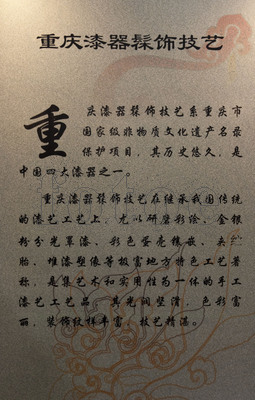 重庆漆器髹饰技艺
重庆漆器髹饰技艺系重庆市
国家级非物质文化遗产名录
保护项目，其历史悠久，是
中国四大漆器之一。
重庆漆器髹饰技艺在继承我国传统
的漆艺工艺上，尤以研磨彩绘、金银
粉分光罩漆、彩色蛋壳镶嵌、夹
胎、堆漆塑像等极富地方特色工艺著
称，是集艺术和实用性为一体的手工
漆艺工艺品，其光润坚滑，色彩富
丽，装饰纹样丰富，技艺精湛。